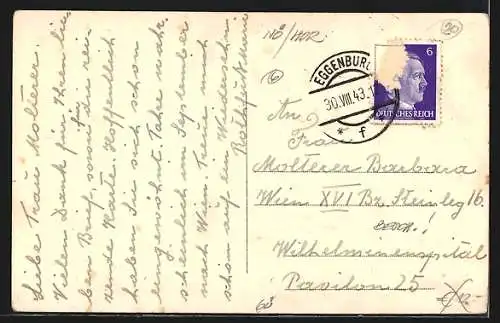 Liebe Frau Molterer.
Vielen Dank für Ihr lie-
ben Brief, sowie für rei-
zende Karte. Hoffentlich
haben Sie sich schon
eingewöhnt. Fahre wahr-
scheinlich im September
nach Wien. Freue mich
schon auf ein Wiedersehn
EGGENBURG
30.VIII.43.
* f
6
DEUTSCHES REICH
An
Frau
Molterer Barbara
Wien XVI Bz. Steinleg 16
Wilhelminenspital
Pavilon 25
20
6